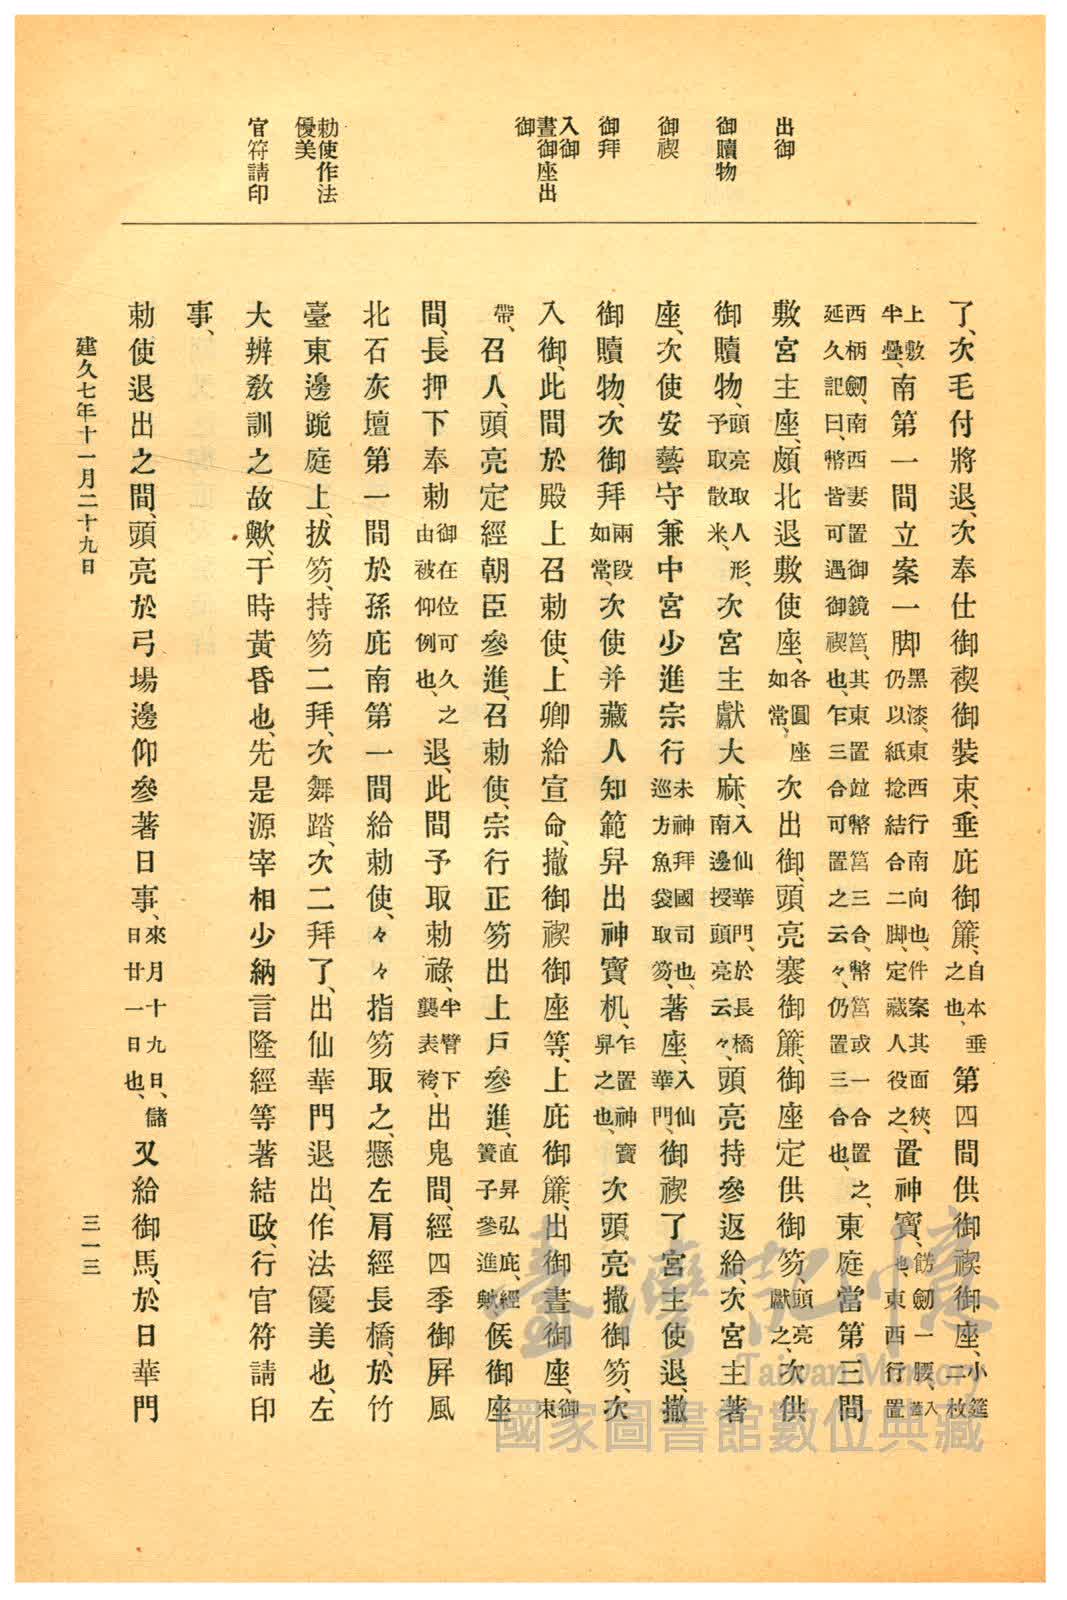 出御
御贖物
御禊
御拜
入御
晝御座出
御
勅使作法
優美
官符請印
了、次毛付將退、次奉仕御禊御裝束、垂庇御簾、自本垂之也、第四間供御禊御座、小筵二枚
上敷半疊、南第一間立案一脚黑漆、東西行南向也、件案其面狹、仍以紙捻結合二脚、定藏人役之、置神寶、餝劒一腰、入莒也、東西行置
西柄劒、南西妻置御鏡筥、其東置竝幣筥三合、幣筥或一合置之、延久記曰、幣皆可遇御禊也、乍三合可置之云々、仍置三合也、東庭當第三間
敷宮主座、頗北退敷使座、各圓座如常、次出御、頭亮褰御簾、御座定供御笏、頭亮獻之、次供
御贖物、頭亮取人形、予取散米、次宮主獻大麻、入仙華門、於長橋南邊授頭亮云々、頭亮持參返給、次宮主著
座、次使安藝守兼中宮少進宗行未神拜國司也、巡方魚袋取笏、著座、入仙華門、御禊了宮主使退、撤
御贖物、次御拜兩段如常、次使并藏人知範舁出神寶机、乍置神寶舁之也、次頭亮撤御笏、次
入御、此間於殿上召勅使、上卿給宣命、撤御禊御座等、上庇御簾、出御晝御座、御束
帶、召人、頭亮定經朝臣參進、召勅使、宗行正笏出上戶參進、直昇弘庇、經簀子參進歟候御座
間、長押下奉勅御在位可久之由被仰例也、退、此間予取勅祿、半臂下襲表袴、出鬼間、經四季御屛風
北石灰壇第一間於孫庇南第一間給勅使、々々指笏取之、懸左肩經長橋、於竹
臺東邊跪庭上、拔笏、持笏二拜、次舞踏、次二拜了、出仙華門退出、作法優美也、左
大辨敎訓之故歟、于時黃昏也、先是源宰相少納言隆經等著結政、行官符請印
事、
勅使退出之間、頭亮於弓場邊仰參著日事、來月十九日、儲日廿一日也、又給御馬、於日華門
建久七年十一月二十九日
三一三
臺灣記憶
Taiwan Memory
國家圖書館數位典藏